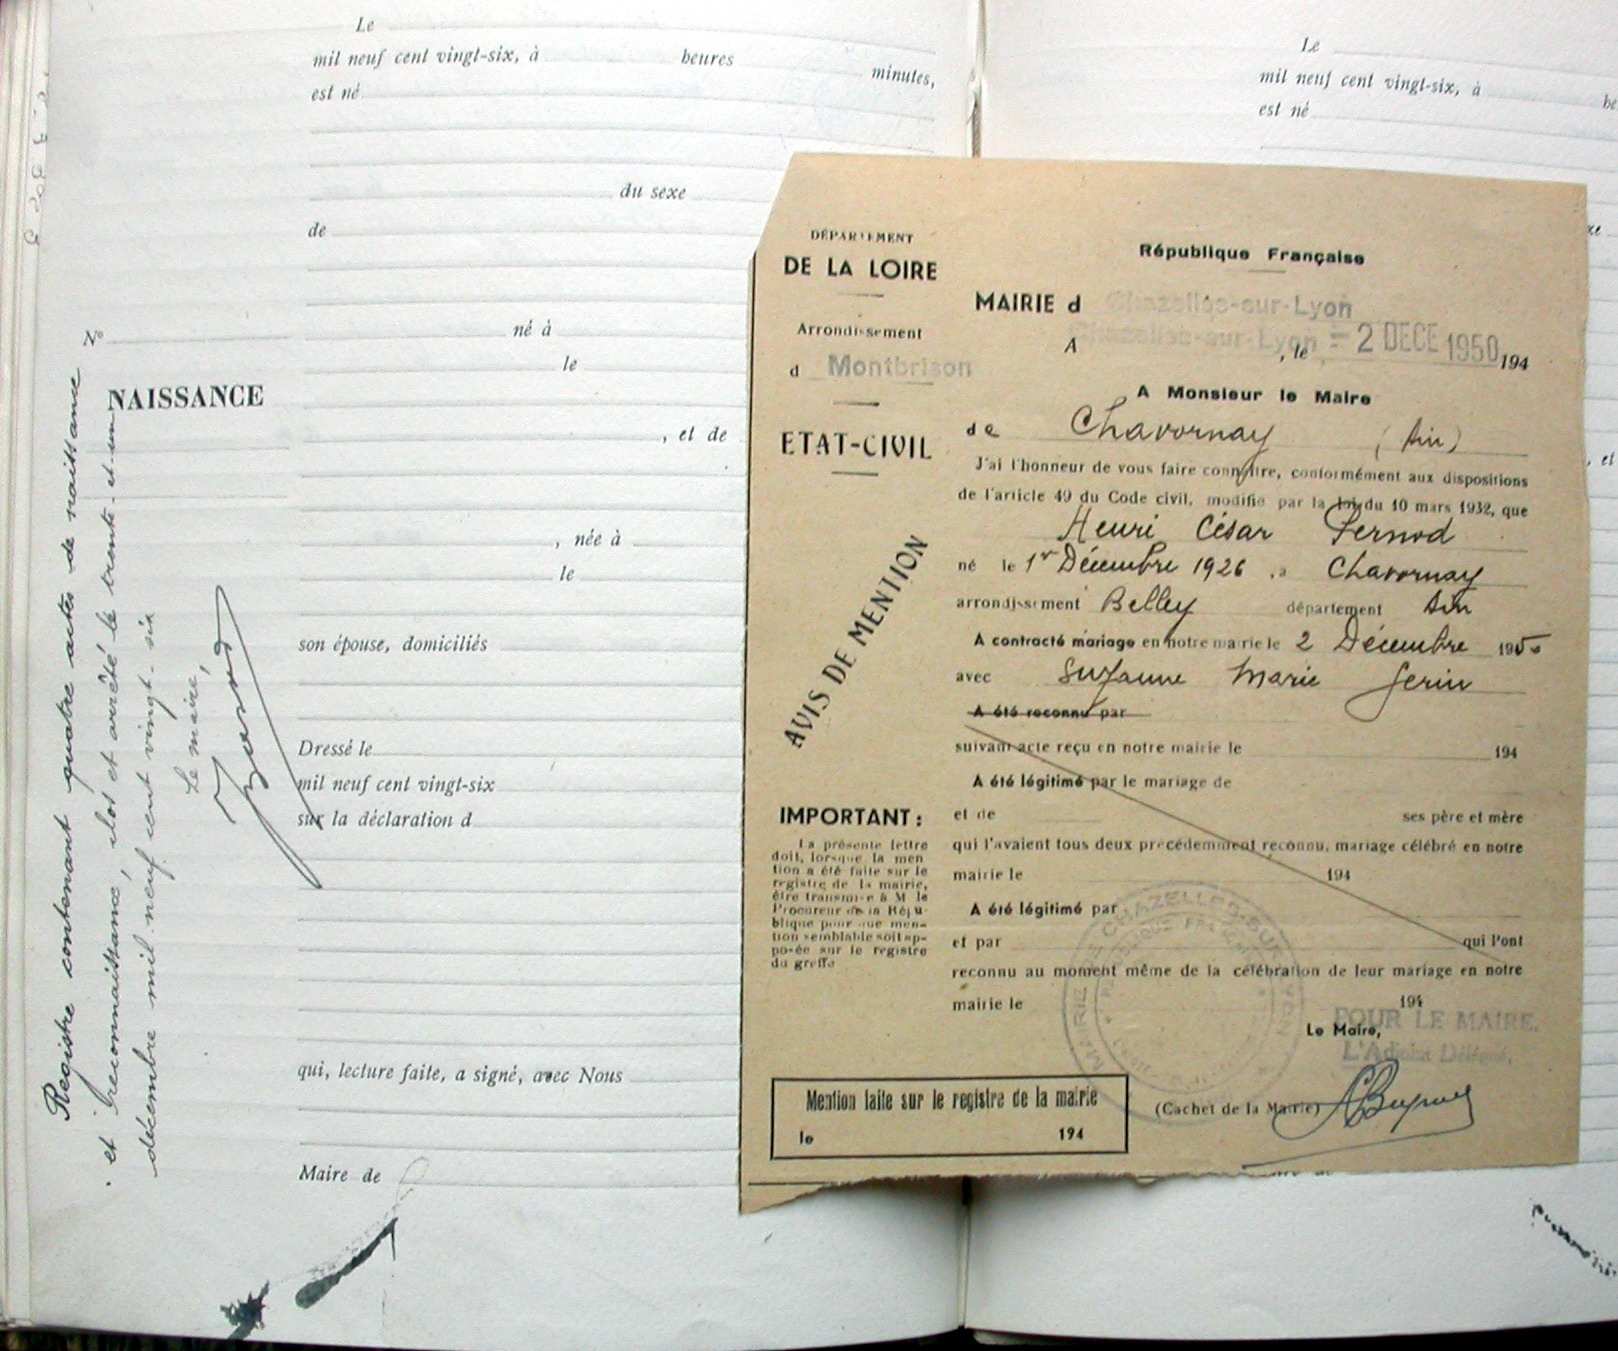 Le
mil neuf cent vingt-six, à heures minutes,
est né
du sexe
de
N° né à
le
NAISSANCE
, et de
, née à
le
son épouse, domiciliés
Dressé le
mil neuf cent vingt-six
sur la déclaration d
qui, lecture faite, a signé, avec Nous
Maire de
Registre contenant quatre actes de naissance
et reconnaissance, clos et arrêté le trente-et-un
décembre mil neuf cent vingt-six
Le maire,
Le
mil neuf cent vingt-six, à he
est né
, et
DÉPARTEMENT
DE LA LOIRE
Arrondissement
d Montbrison
ETAT-CIVIL
AVIS DE MENTION
IMPORTANT :
La présente lettre
doit, lorsque la men
tion a été faite sur le
registre de la mairie,
être transmise à M le
Procureur de la Répu-
blique pour que men-
tion semblable soit ap-
posée sur le registre
du greffe
République Française
MAIRIE d Chazelles-sur-Lyon
A Chazelles-sur-Lyon , le = 2 DECE 1950 194
A Monsieur le Maire
de Chavornay (Ain)
J'ai l'honneur de vous faire connaître, conformément aux dispositions
de l'article 49 du Code civil, modifié par la loi du 10 mars 1932, que
Henri César Pernod
né le 1er Décembre 1926 , à Chavornay
arrondissement Belley département Ain
A contracté mariage en notre mairie le 2 Décembre 1950
avec Suzanne Marie Gerin
A été reconnu par
suivant acte reçu en notre mairie le 194
A été légitimé par le mariage de
et de ses père et mère
qui l'avaient tous deux précédemment reconnu, mariage célébré en notre
mairie le 194
A été légitimé par
et par qui l'ont
reconnu au moment même de la célébration de leur mariage en notre
mairie le 194
Le Maire,
POUR LE MAIRE,
L'Adjoint Délégué,
(Cachet de la Mairie)
MAIRIE DE CHAZELLES-SUR-LYON
Mention faite sur le registre de la mairie
le 194